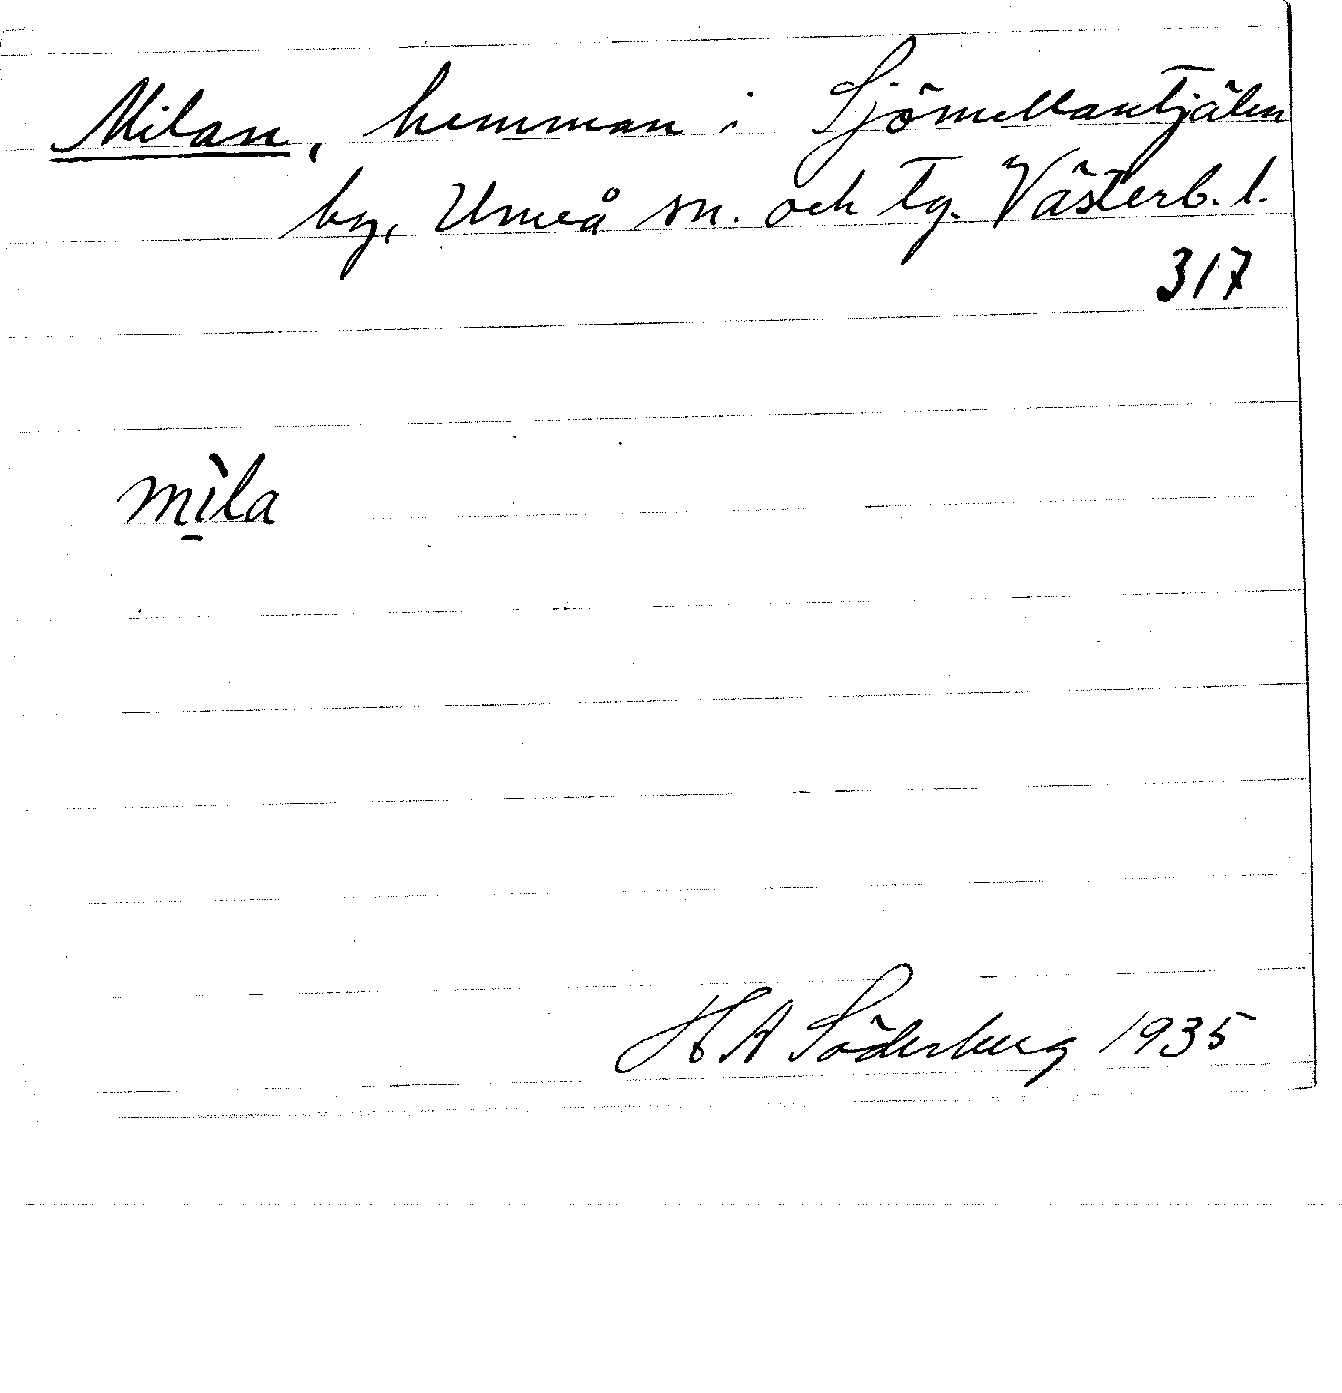 Milan, hemman i Sjömellantjälen
by, Umeå sn. och tg. Västerb. l.
317
mì̱la
H A Söderberg 1935